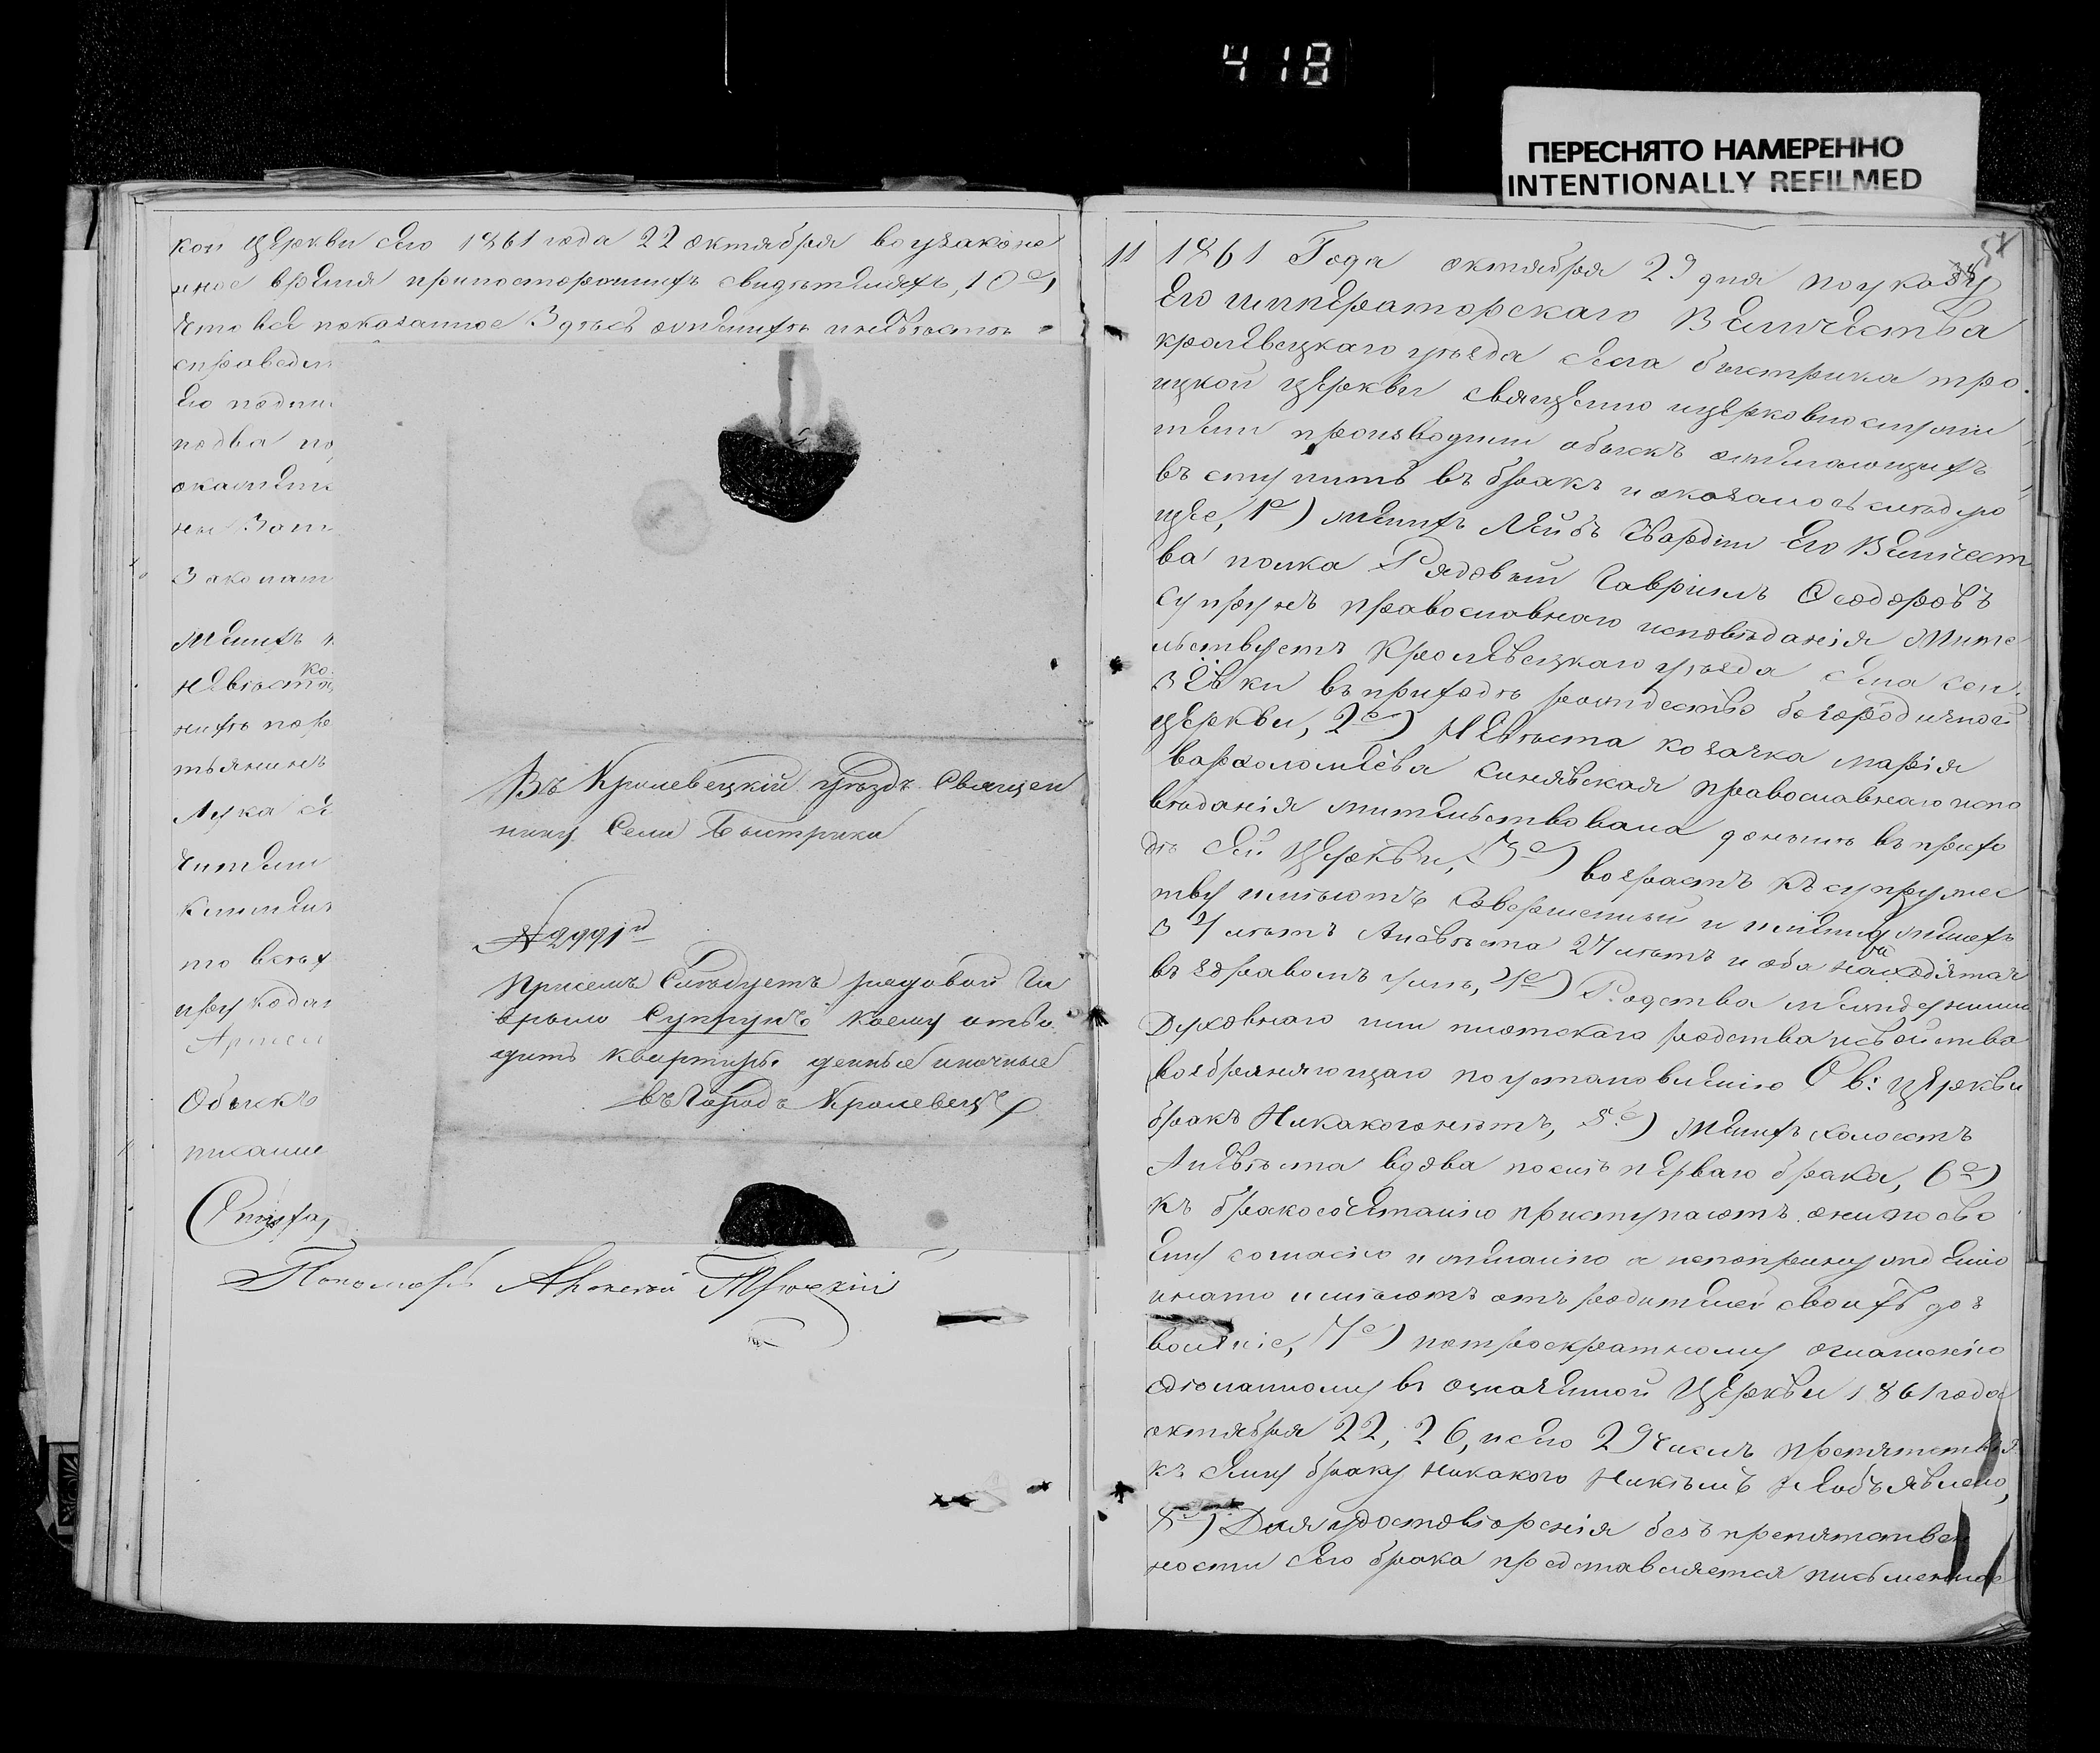 418
ПЕРЕСНЯТО НАМЕРЕННО
INTENTIONALLY REFILMED
кои церкви сего 1861 года 22 октября воузаконе
нное время припостороннихъ свидѣтеляхъ, 10е)
Что всё показанное Здѣсь о женихѣ иневѣстѣ
справедли
Его подпи
подва по
окажет
ны Зат
Законам
Женихъ
невѣста
нихъ пор
тьянинъ
Лука
чители
Климен
то всѣх
приходи
Обыскъ
писание
Пономарь Троцкій
Въ Кролевецкій уѣздъ Священ
нику Села Быстрика
№ 2991й
Присемъ Слѣдуетъ рядовой Га
врыло Супрунъ коему отво
дить квартиры денные иночные
въ Городъ Кролевецъ
11
1861 Года октября 29 дня поуказу
Его императорскаго Величества
кролевецкаго уѣзда села быстрика тро
ицкой церкви священно ицерковнослужи
тели производили обыскъ ожелающихъ
вступить въ бракъ иоказалось слѣдую
щее, 1е) женихъ Лейбъ Гвардіи Его Величест
ва полка Рядовый Гавріилъ Ѳеодоровъ
супрунъ православнаго исповѣданія Жите
льствуетъ Кролевецкаго уѣзда села
въприходѣ рождество богородичной
церкви, 2е) Невѣста козачка марія
варѳоломіева синявская православнаго испо
вѣданія жительствовала донынѣ въ прихо
дѣ сей церкви, 3е) возрастъ къ супружес
тву имѣютъ совершенный и именно женихъ
лѣтъ Аневѣста 27 лѣтъ и оба находятся
въ здравомъ умѣ, 4е) Родства между ними
Духовнаго или плотскаго родства исвойства
возбраняющаго поустановленію Св: церкви
бракъ Никакогонѣтъ, 5е) Женихъ холостъ
Аневѣста вдова послѣ перваго брака, 6е)
къ бракосочетанію приступаютъ они посво
ему согласію и желанію а непопринужденію
инато имѣютъ отъ родителей своихъ доз
воленіе, 7е) потроекратному оглашенію
сдѣланному въ означенной Церкви 1861 года
октября 22, 26, исего 29 числъ препятствія
къ сему браку никакого никѣмъ необъявлено,
8е) Для удостовѣренія безъпрепятствен
ности сего брака представляется письменное